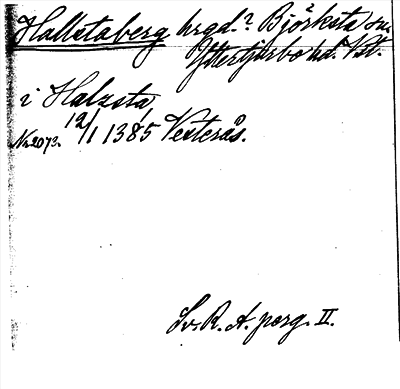 Hallstaberg hrgd.? Björksta sn.
Yttertjurbo hd. Vst.
i Halzsta
No 2073. 12/1 1385 Vesterås.
Sv. R. A. perg. II.